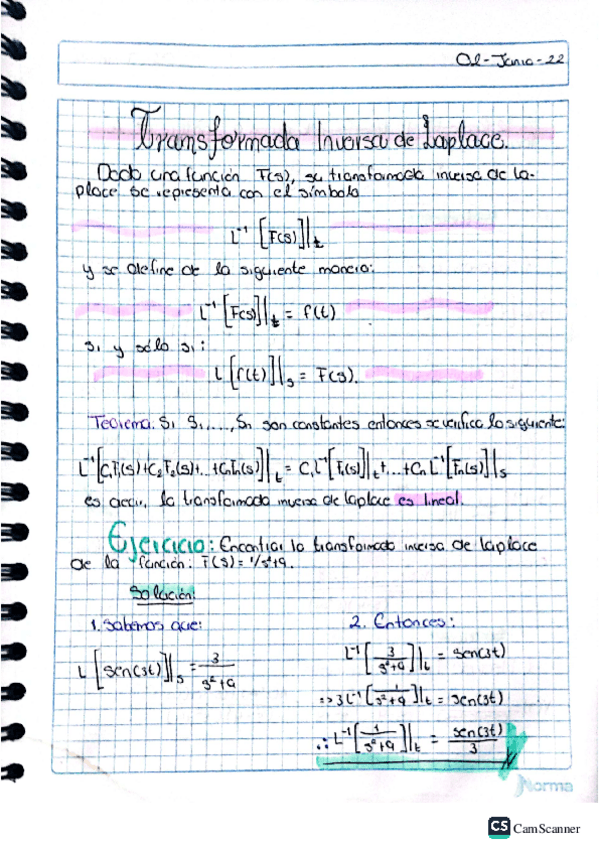 02-Junio-22
Transformada Inversa de Laplace.
Dada una función F(s), su transformada inversa de La-
place se representa con el símbolo
L⁻¹ [F(s)]|ₜ
y se define de la siguiente manera:
L⁻¹ [F(s)]|ₜ = f(t)
si y sólo si:
L [f(t)]|ₛ = F(s).
Teorema. Si S₁,...., Sₙ son constantes entonces se verifica lo siguiente:
L⁻¹[C₁F₁(s)+C₂F₂(s)+...+CₙFₙ(s)]|ₜ = C₁L⁻¹[F₁(s)]|ₜ+...+Cₙ L⁻¹[Fₙ(s)]|ₛ
es decir, la transformada inversa de laplace es lineal.
Ejercicio: Encontrar la transformada inversa de laplace
de la función: F(s) = 1/s²+9.
Solución:
1. Sabemos que:
L [sen(3t)]|ₛ = 3/s²+9
2. Entonces:
L⁻¹ [3/s²+9]|ₜ = sen(3t)
=> 3 L⁻¹ [1/s²+9]|ₜ = sen(3t)
∴ L⁻¹ [1/s²+9]|ₜ = sen(3t)/3
Norma
CS CamScanner